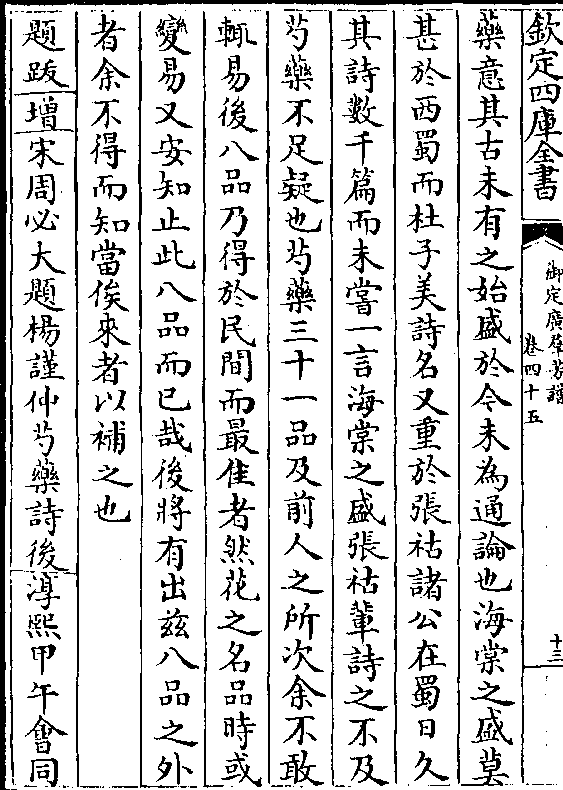 欽定四庫全書
御定廣羣芳譜
卷四十五
十三
藥意其古未有之始盛於今未為通論也海棠之盛莫
甚於西蜀而杜子美詩名又重於張祜諸公在蜀日久
其詩數千篇而未嘗一言海棠之盛張祜輩詩之不及
芍藥不足疑也芍藥三十一品及前人之所次余不敢
輒易後八品乃得於民間而最佳者然花之名品時或
變易又安知止此八品而已哉後將有出兹八品之外
者余不得而知當俟來者以補之也
題跋增宋周必大題楊謹仲芍藥詩後淳熙甲午會同